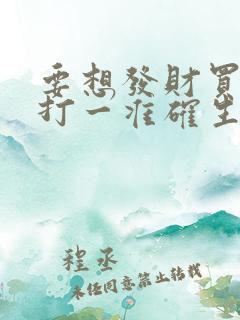 要想發財買
打一准確生
程丞
未任同意禁止转载